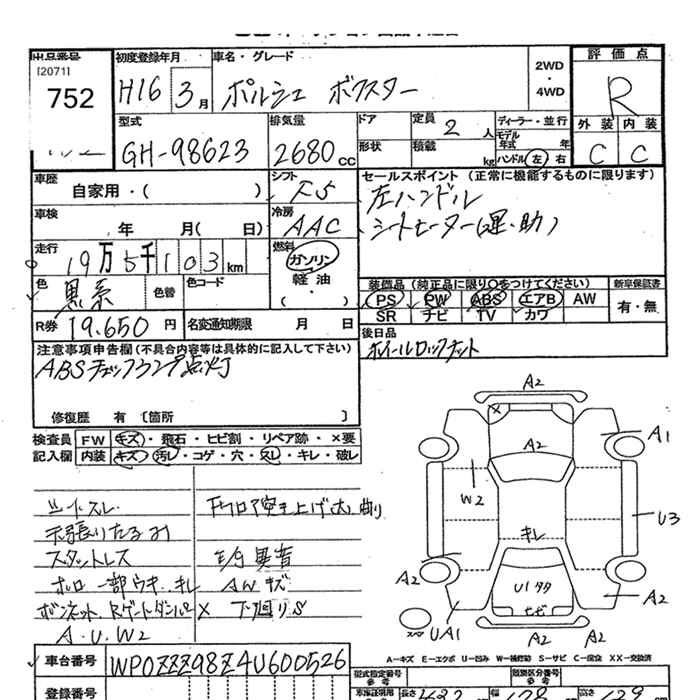 出品番号
[2071]
752
初度登録年月
H16 3月
車名・グレード
ポルシェ ボクスター
2WD
・
4WD
評価点
R
外装 内装
C C
型式
GH-98623
排気量
2680cc
ドア
形状
定員 2人
積載 kg
ディーラー・並行
モデル
年式 年
ハンドル 左 右
車歴
自家用・( )
シフト
F5
セールスポイント(正常に機能するものに限ります)
左ハンドル
シートヒーター(運・助)
車検
年 月( 日)
冷房
AAC
走行
19万5千103km
燃料
ガソリン
軽油
・
色
黒系
色替
色コード
装備品(純正品に限り○をつけてください)
新車保証書
PS PW ABS エアB AW
SR ナビ TV カワ
有・無
R券 19.650円
名変通知期限 月 日
後日品
ホイールロックナット
注意事項申告欄(不具合内容等は具体的に記入して下さい)
ABSチェックランプ点灯
修復歴 有 〔箇所 〕
検査員 FW キズ・飛石・ヒビ割・リペア跡・×要
記入欄 内装 キズ・汚レ・コゲ・穴・スレ・キレ・破レ
シートスレ
天張りたるみ
スタットレス
ホロ一部ウキ、キレ
ボンネット、Rゲートダンパ×
A.U.W2
フロア突き上げ大、曲り
E/g異音
AWキズ
下廻りS
A2
A1
A2
W2
U3
キレ
A2
U1
A2
UA1
A2
A2
車台番号 WP0ZZZ98Z4U600526
登録番号
A-キズ E-エクボ U-凹み W-補修跡 S-サビ C-腐食 XX-交換済
型式指定番号
参考
類別区分番号
参考